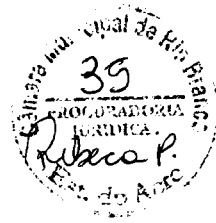 Câmara Municipal de Rio Branco
39
PROCURADORIA
JURÍDICA
Rebeca P.
Est. do Acre